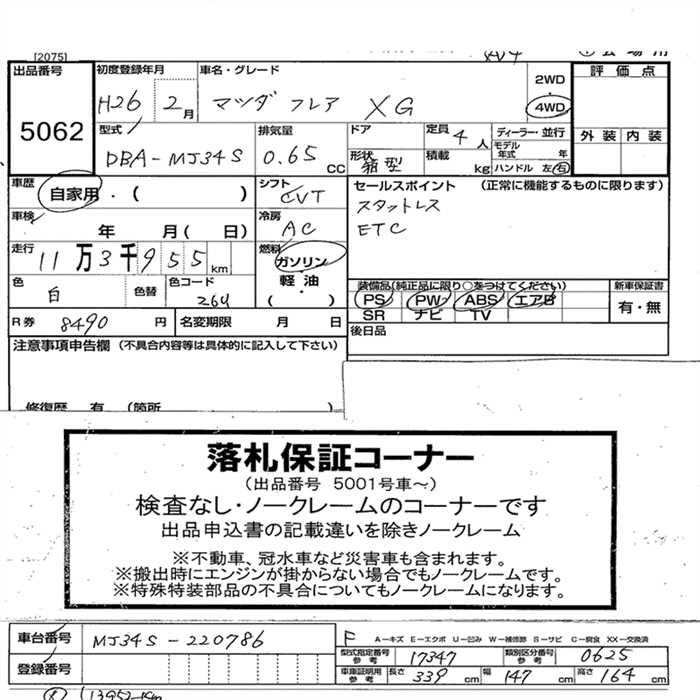 [2075]
出品番号 5062
初度登録年月 H26 2月
車名・グレード マツダ フレア XG
2WD
4WD
評価点
外装 内装
型式 DBA-MJ34S
排気量 0.65 CC
ドア
形状 箱型
定員 4人
積載 kg
ディーラー・並行
モデル年式 年
ハンドル 左右
車歴 自家用・( )
シフト CVT
セールスポイント (正常に機能するものに限ります)
スタットレス
ETC
車検 年 月(日)
冷房 AC
走行 11万3千955km
燃料 ガソリン
軽油
( )
色 白 色替
色コード 26U
装備品(純正品に限り○をつけてください)
PS PW ABS エアB
SR ナビ TV
新車保証書
有・無
R券 8490円
名変期限 月 日
後日品
注意事項申告欄 (不具合内容等は具体的に記入して下さい)
修復歴 有 (箇所 )
落札保証コーナー
(出品番号 5001号車～)
検査なし・ノークレームのコーナーです
出品申込書の記載違いを除きノークレーム
※不動車、冠水車など災害車も含まれます。
※搬出時にエンジンが掛からない場合でもノークレームです。
※特殊特装部品の不具合についてもノークレームになります。
車台番号 MJ34S-220786
F A-キズ E-エクボ U-凹み W-補修跡 S-サビ C-腐食 XX-交換済
型式指定番号 参考 17347
類別区分番号 参考 0625
登録番号
車庫証明用 参考 長さ 339cm 幅 147cm 高さ 164cm